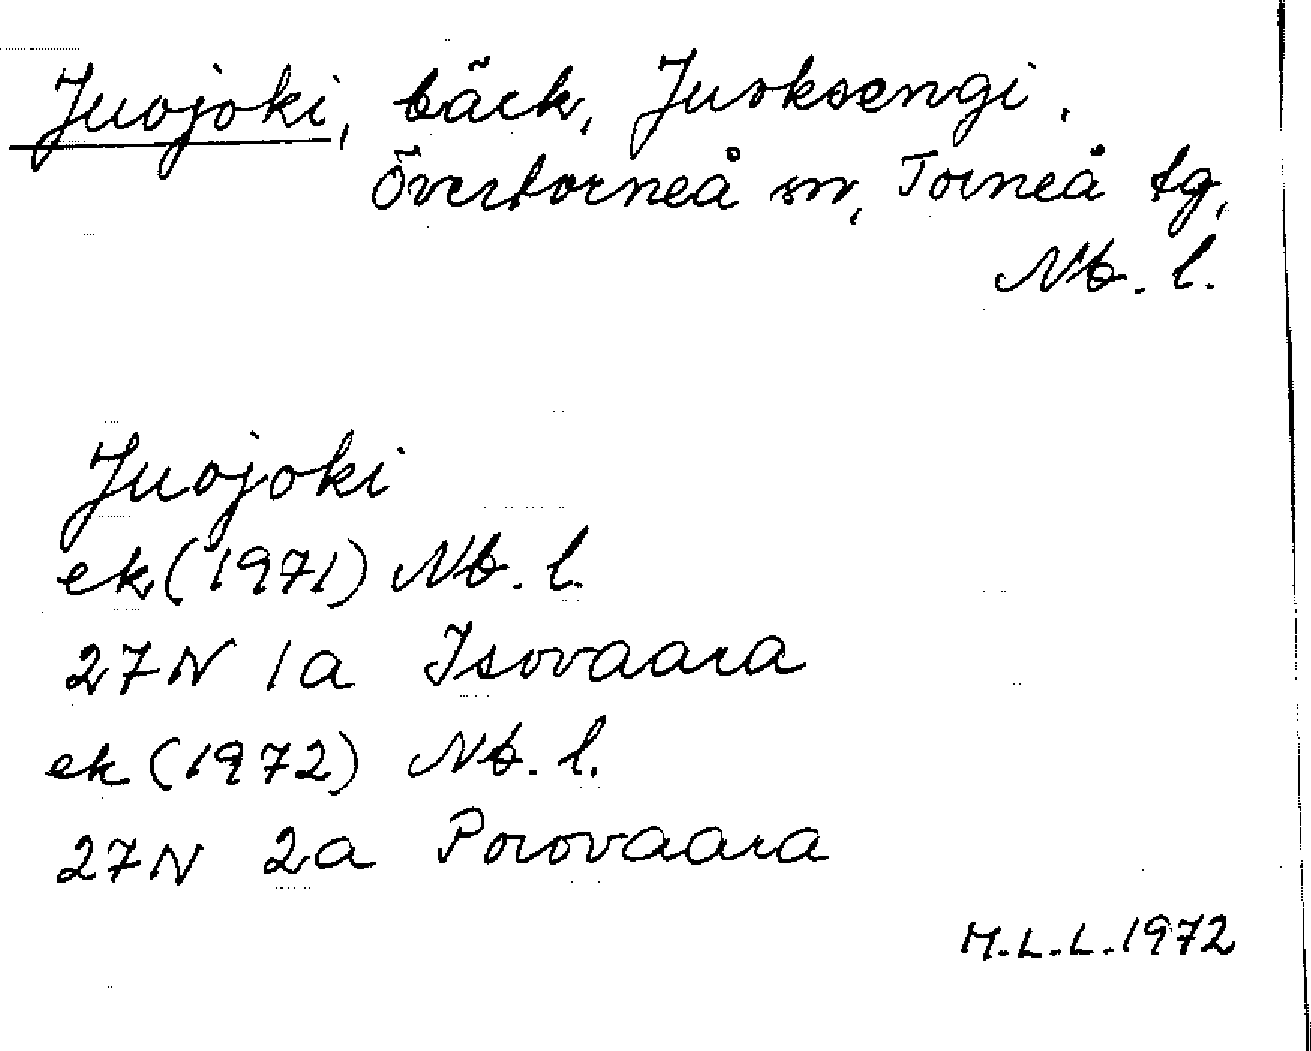 Juojoki, bäck, Juoksengi,
Övertorneå sn, Torneå tg,
Nb. l.
Juojoki
ek (1971) Nb. l.
27N 1a Isovaara
ek (1972) Nb. l.
27N 2a Porovaara
M.L.L. 1972